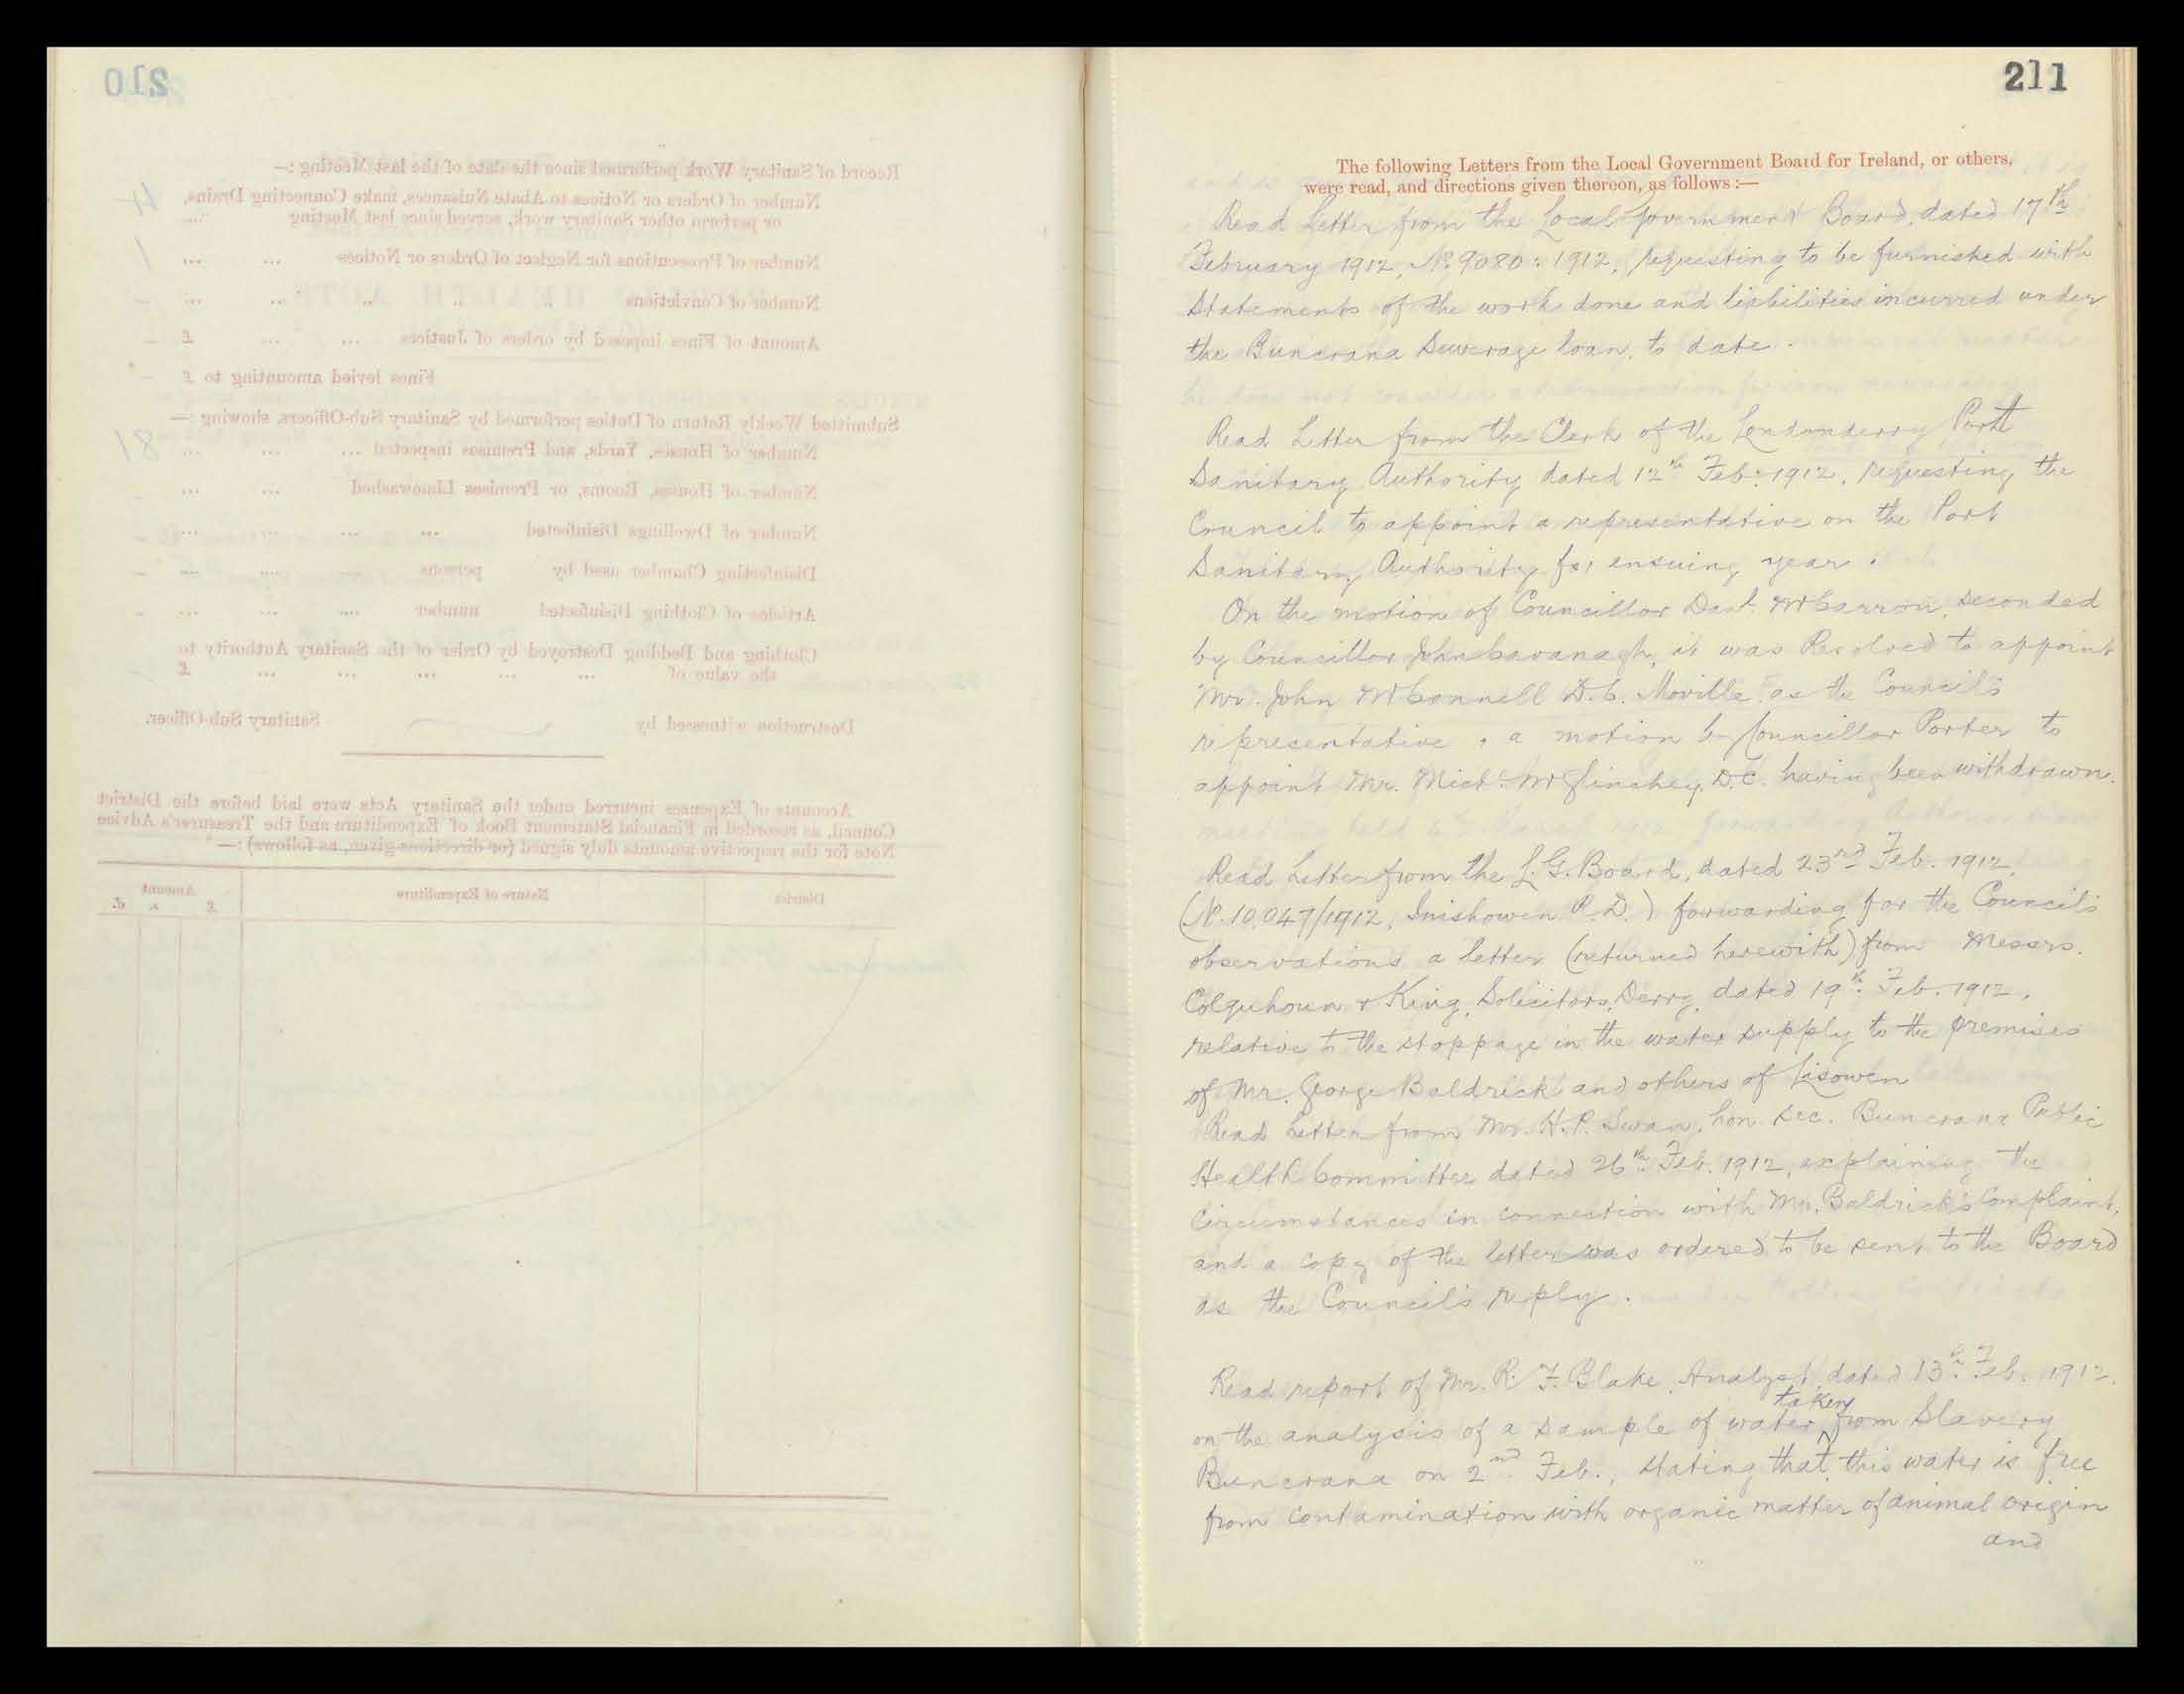 210
Record of Sanitary Work performed since the date of the last Meeting :—
Number of Orders or Notices to Abate Nuisances, make Connecting Drains,
or perform other Sanitary work, served since last Meeting ... 4
Number of Prosecutions for Neglect of Orders or Notices ... ... 1
Number of Convictions " " " ... ... –
Amount of Fines imposed by orders of Justices ... ... £ –
Fines levied amounting to £ –
Submitted Weekly Return of Duties performed by Sanitary Sub-Officers, showing :—
Number of Houses, Yards, and Premises inspected ... ... ... 81
Number of Houses, Rooms, or Premises Limewashed ... ... –
Number of Dwellings Disinfected ... ... ... ... –
Disinfecting Chamber used by persons ... ... ... –
Articles of Clothing Disinfected number ... ... ... –
Clothing and Bedding Destroyed by Order of the Sanitary Authority to
the value of ... ... ... ... ... £ –
Destruction witnessed by Sanitary Sub-Officer.
Accounts of Expenses incurred under the Sanitary Acts were laid before the District
Council, as recorded in Financial Statement Book of Expenditure and the Treasurer's Advice
Note for the respective amounts duly signed (or directions given, as follows) :—
District Nature of Expenditure Amount
£ s. d.
211
The following Letters from the Local Government Board for Ireland, or others,
were read, and directions given thereon, as follows :—
Read Letter from the Local Government Board, dated 17th
February 1912, No. 9080 : 1912, requesting to be furnished with
Statements of the work done and liabilities incurred under
the Buncrana Sewerage loan, to date.
Read Letter from the Clerk of the Londonderry Port
Sanitary Authority dated 12th Feb. 1912, requesting the
Council to appoint a representative on the Port
Sanitary Authority for ensuing year.
On the motion of Councillor Danl. McCarron, seconded
by Councillor John Cavanagh, it was Resolved to appoint
Mr. John McConnell D.C. Moville as the Council's
representative, a motion by Councillor Porter to
appoint Mr. Michl. McGlinchey, D.C. having been withdrawn.
Read Letter from the L. G. Board, dated 23rd Feb. 1912,
(No. 10,047/1912, Inishowen R.D.) forwarding for the Council's
observations a letter (returned herewith) from Messrs.
Colquhoun & King, Solicitors, Derry, dated 19th Feb. 1912,
relative to the stoppage in the water supply to the premises
of Mr. George Baldrick and others of Lisowen
Read Letter from Mr. H. P. Swan, hon. sec. Buncrana Public
Health Committee dated 26th Feb. 1912, explaining the
Circumstances in connection with Mr. Baldrick's Complaint,
and a copy of the letter was ordered to be sent to the Board
as the Council's reply.
Read report of Mr. R. F. Blake, Analyst, dated 13th Feb. 1912,
on the analysis of a sample of water taken from Slavery
Buncrana on 2nd Feb., stating that this water is free
from contamination with organic matter of animal origin
and